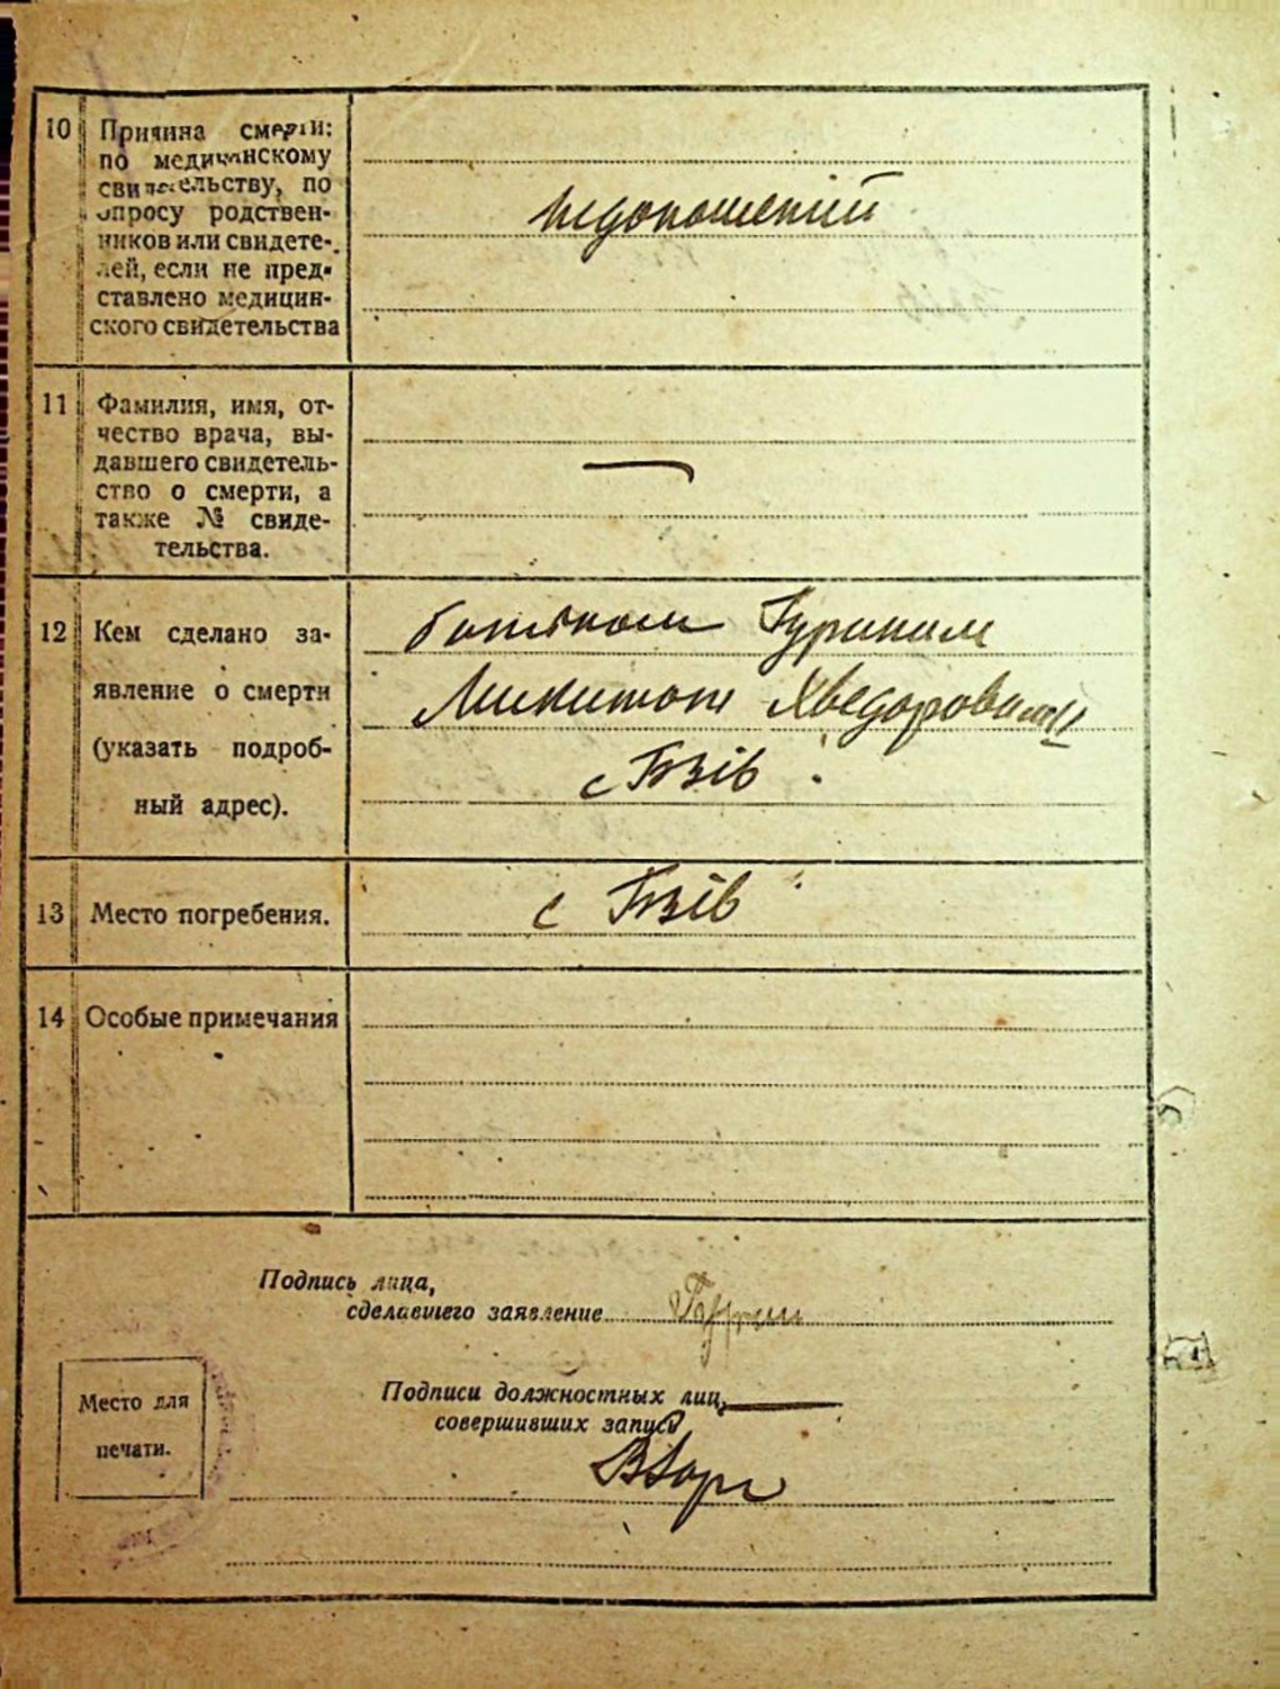 10 Причина смерти:
по медицинскому
свидетельству, по
опросу родствен-
ников или свидете-
лей, если не пред-
ставлено медицин-
ского свидетельства
недоношений
11 Фамилия, имя, от-
чество врача, вы-
давшего свидетель-
ство о смерти, а
также № свиде-
тельства.
—
12 Кем сделано за-
явление о смерти
(указать подроб-
ный адрес).
батьком Гуриним
Микитою Хведоровичем
с Гвзів
13 Место погребения.
с Гвзів
14 Особые примечания
Подпись лица,
сделавшего заявление Гурин
Подписи должностных лиц,
совершивших запись
Место для
печати.